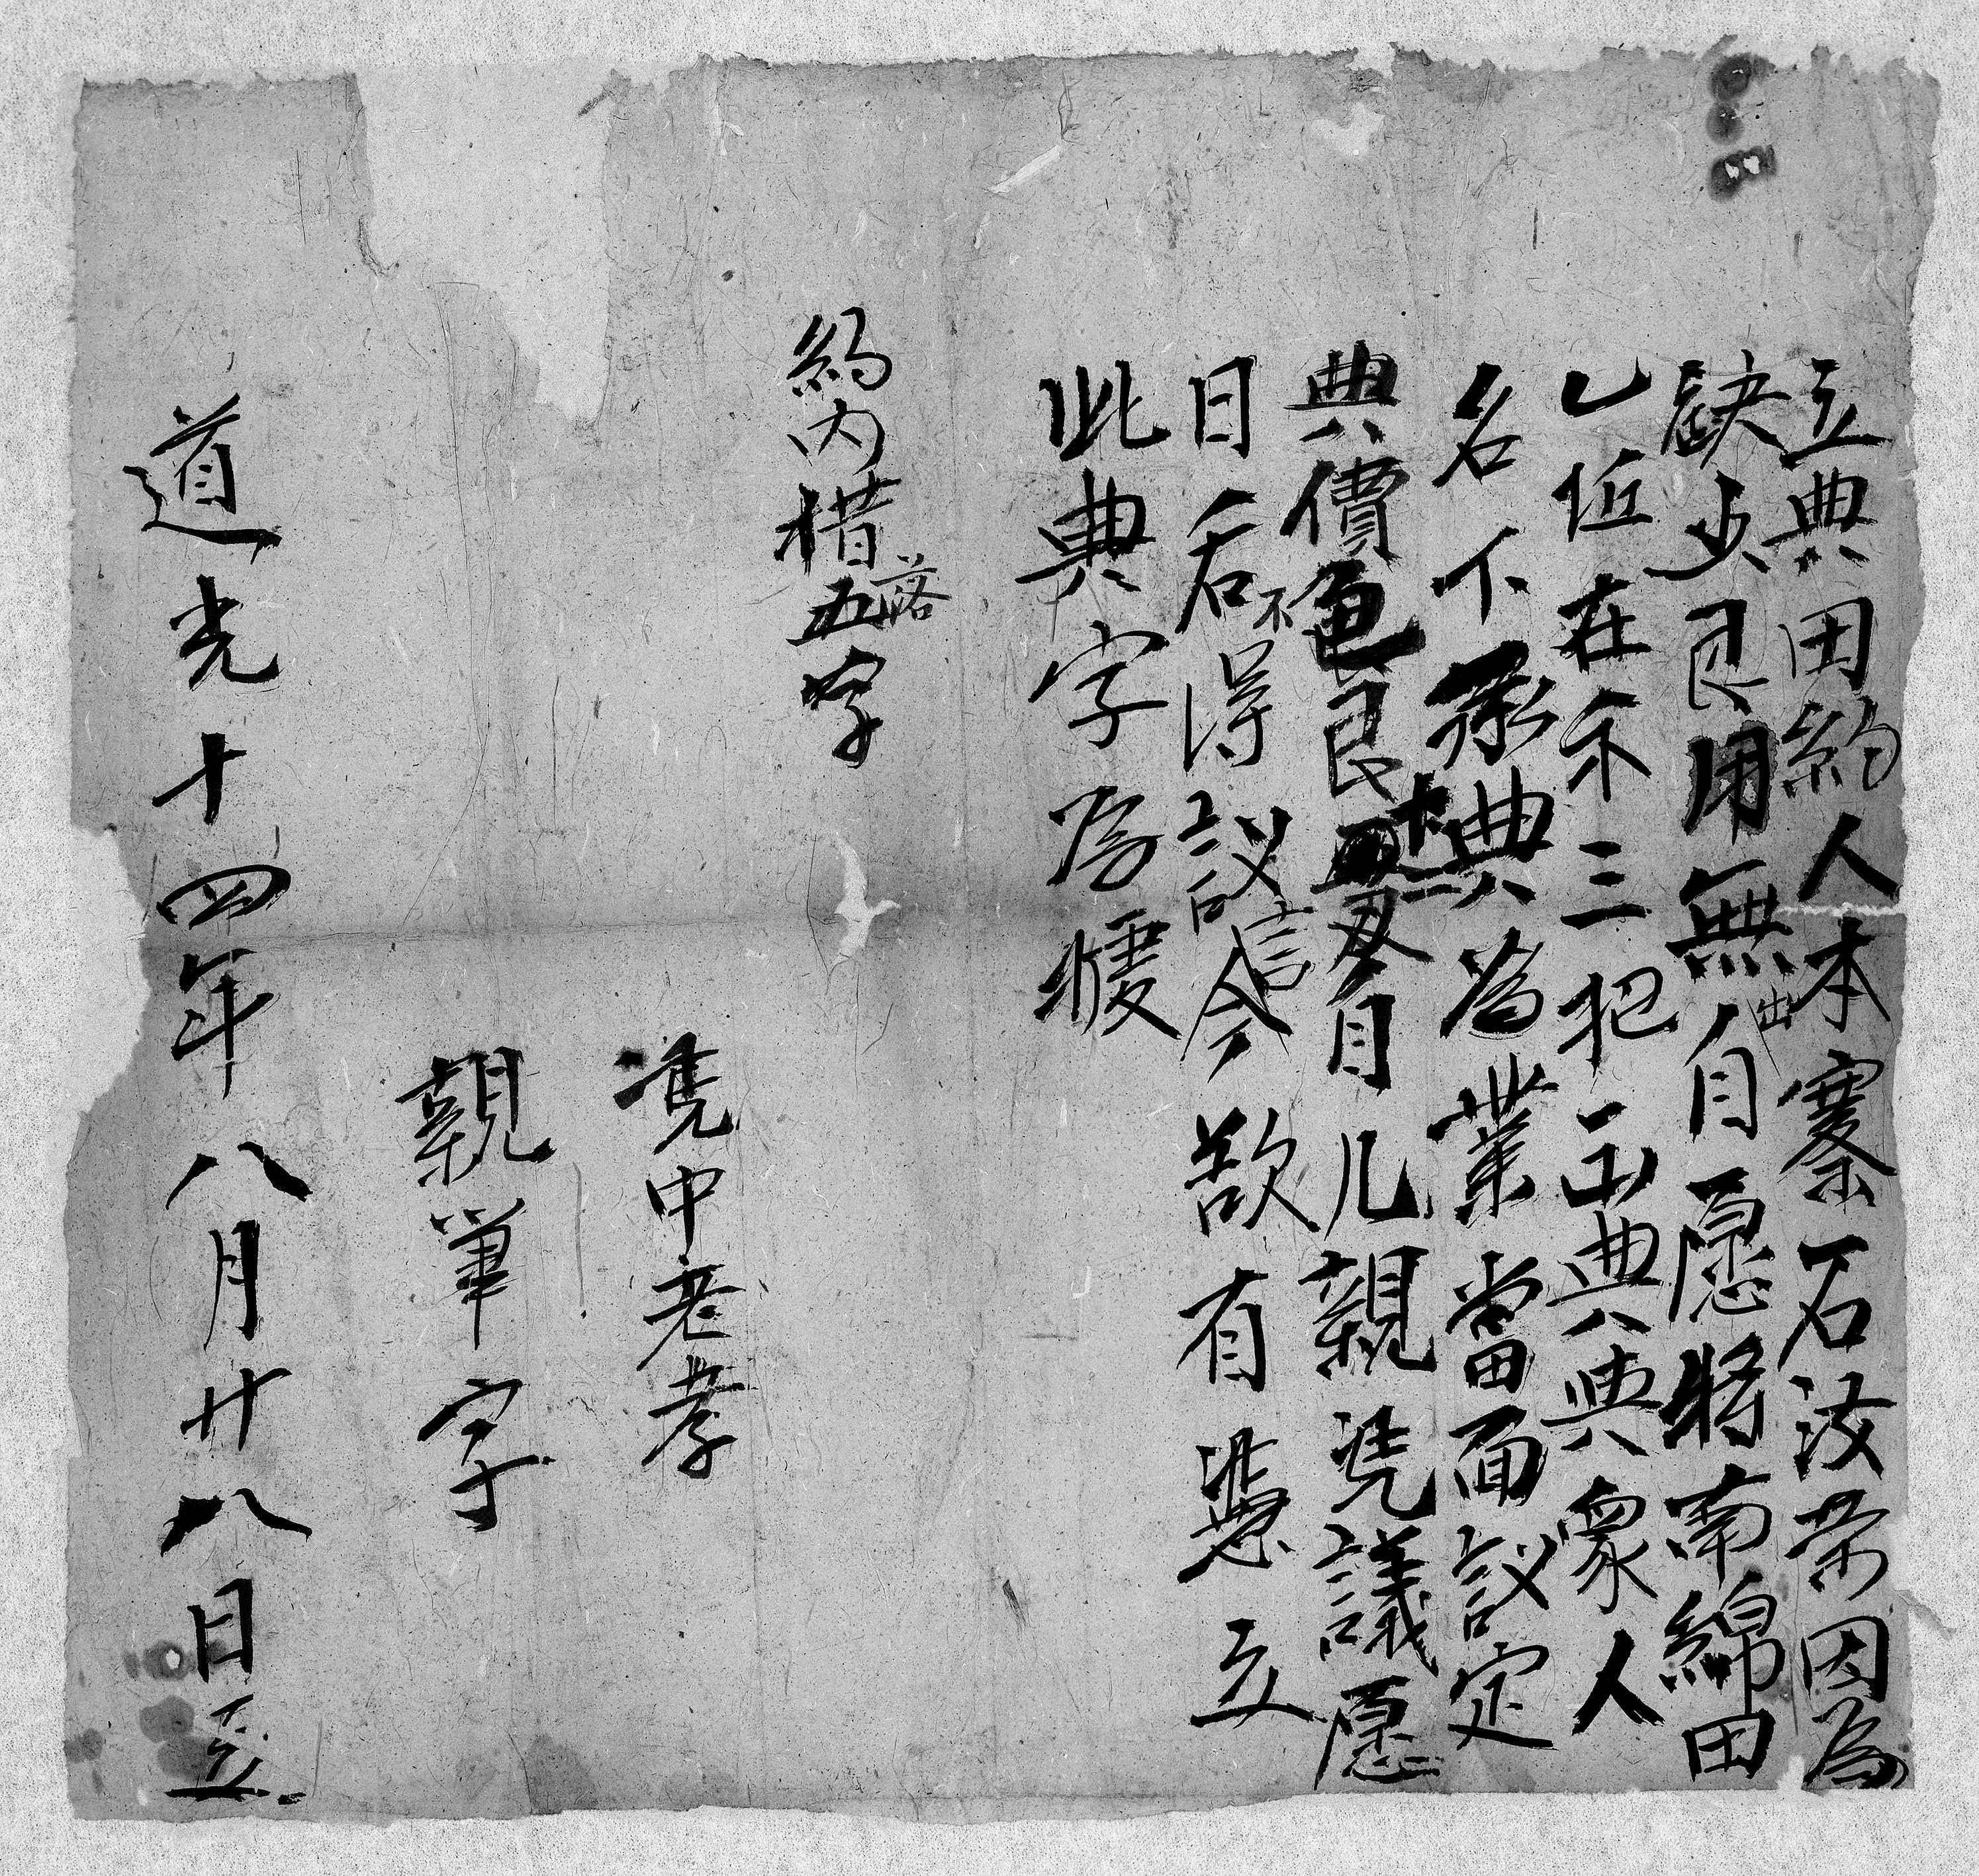 立典田約人本寨石汝荣因為
缺少艮用無出自愿將南綿田
乙近在禾三把正典典象人
名下承典為業當面議定
典價色艮五月几親凴議愿
日后不得議信今欲有慿立
此典字為㨿
約内措落五字
凴中老孝
親筆字
道光十四年八月廿八日立